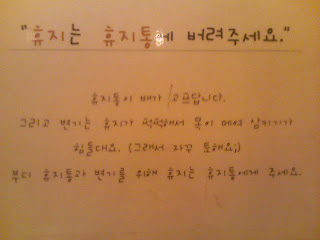 "휴지는 휴지통에 버려주세요."
휴지통이 배가 고프답니다.
그리고 변기는 휴지가 퍽퍽해서 목이 메여 삼키기가
힘들대요. (그래서 자꾸 토해요;)
부디 휴지통과 변기를 위해 휴지는 휴지통에게 주세요.